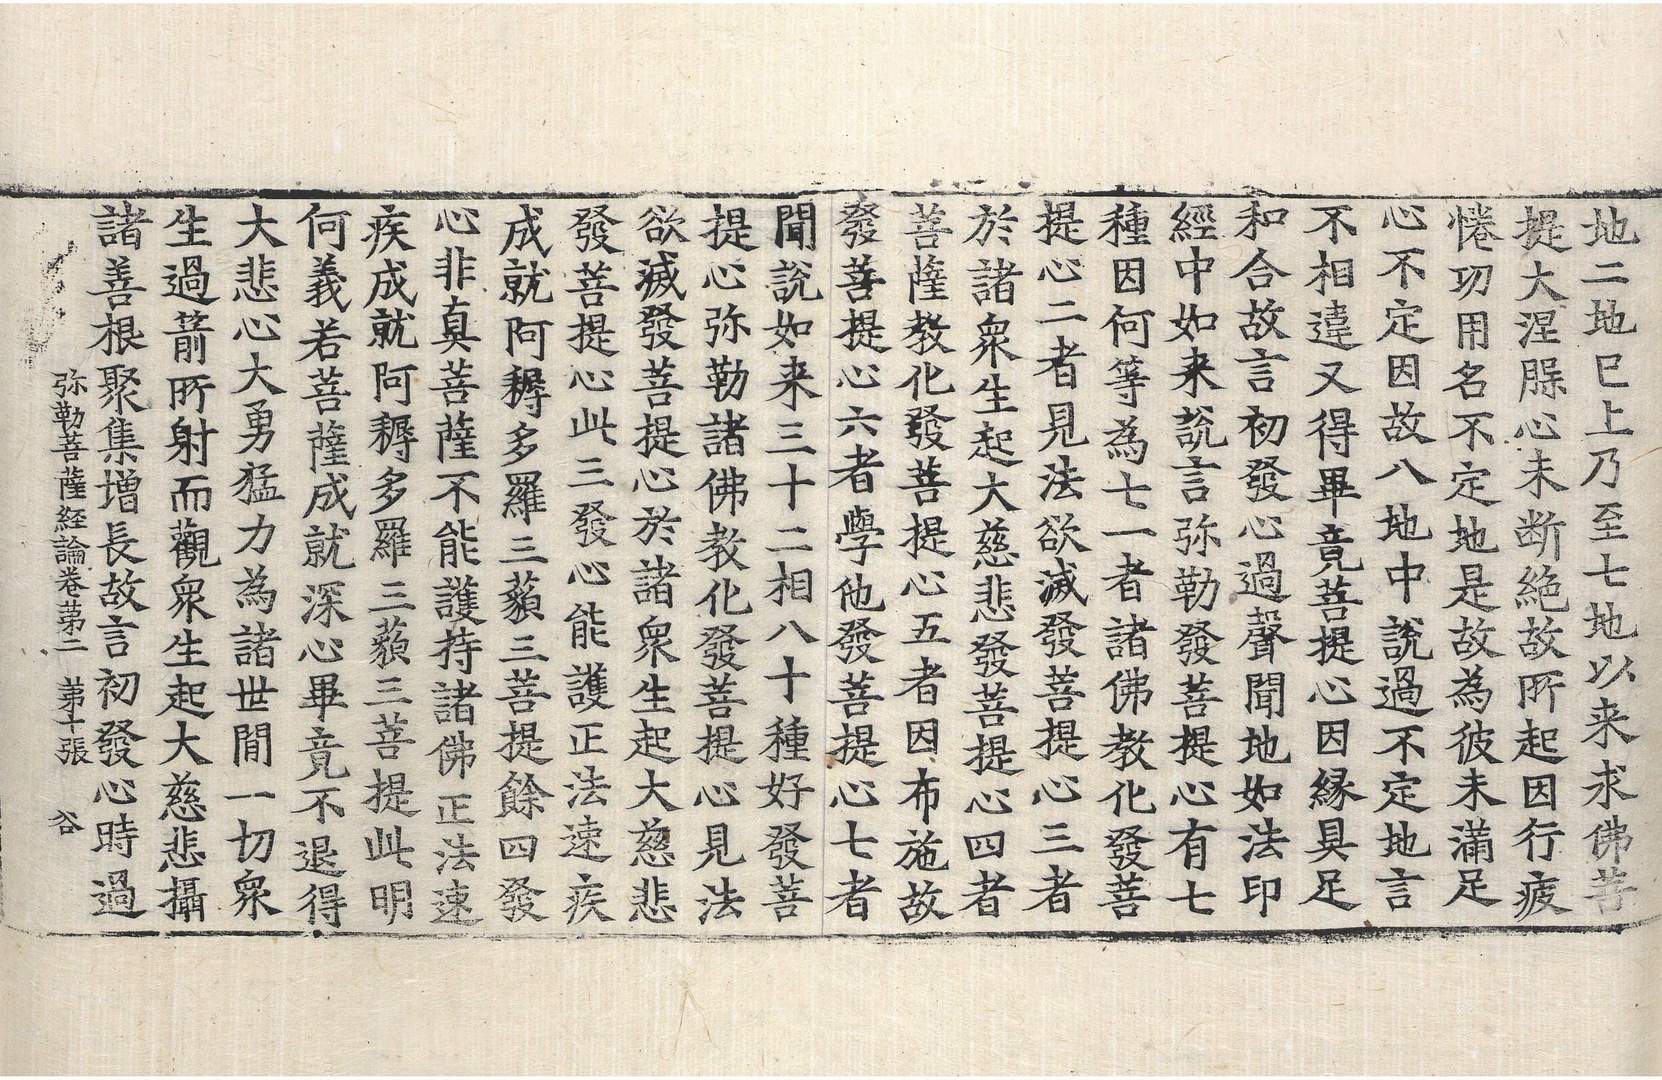 地二地已上乃至七地以来求佛菩
提大涅脲心未断絶故所起因行疲
惓功用名不定地是故為彼未滿足
心不定因故八地中說過不定地言
不相違又得畢竟菩提心因縁具足
和合故言初發心過聲聞地如法印
經中如来說言弥勒發菩提心有七
種因何等為七一者諸佛教化發菩
提心二者見法欲滅發菩提心三者
於諸衆生起大慈悲發菩提心四者
菩薩教化發菩提心五者因布施故
發菩提心六者學他發菩提心七者
聞說如来三十二相八十種好發菩
提心弥勒諸佛教化發菩提心見法
欲滅發菩提心於諸衆生起大慈悲
發菩提心此三發心能護正法速疾
成就阿耨多羅三藐三菩提餘四發
心非真菩薩不能護持諸佛正法速
疾成就阿耨多羅三藐三菩提此明
何義若菩薩成就深心畢竟不退得
大悲心大勇猛力為諸世間一切衆
生過箭所射而觀衆生起大慈悲攝
諸善根聚集増長故言初發心時過
弥勒菩薩経論卷苐二 苐十張 谷